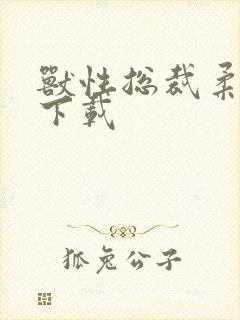 獸性总裁柔
下載
狐兔公子